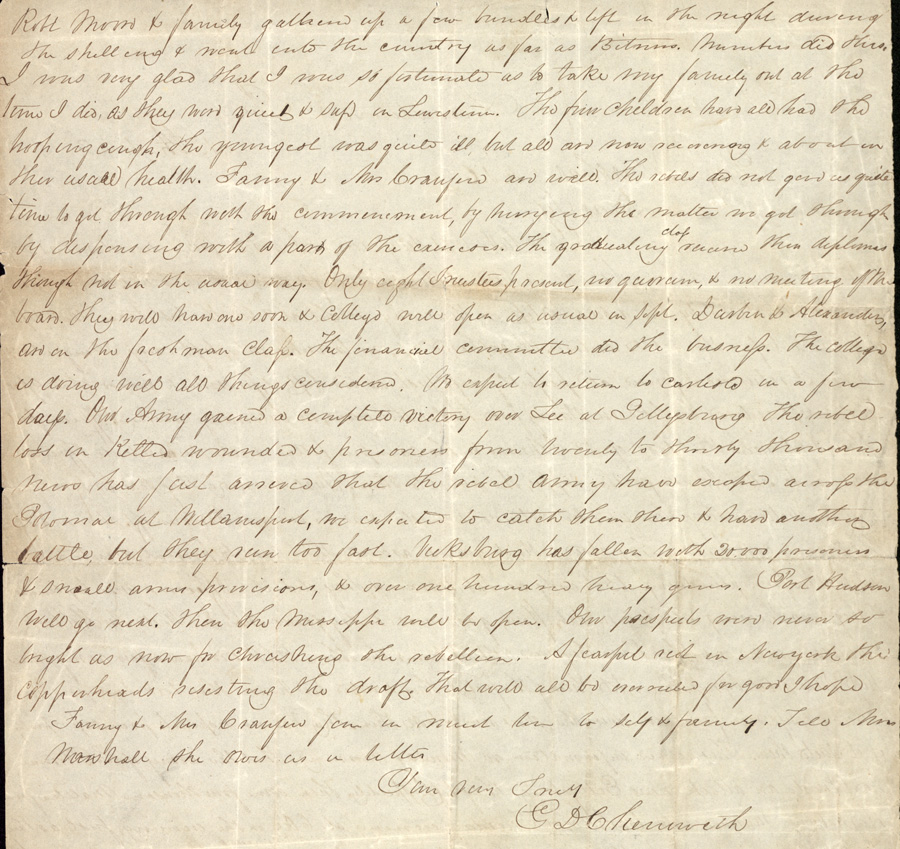 Robt Moore & family gathered up a few bundles & left in the night during
the shelling & went into the country as far as Bitners. Numbers did this.
I was very glad that I was so fortunate as to take my family out at the
time I did, as they were quiet & safe in Lewistown. The four children have all had the
hooping cough, the youngest was quite ill but all are now recovering & about in
their usual health. Fanny & Mrs Craufurd are well. The rebels did not give us quite
time to get through with the commencement, by hurrying the matter we got through
by dispensing with a part of the exercises. The graduating class receive their diplomas
though not in the usual way. Only eight Trustees present, no quorum, & no meeting of the
board. They will have one soon & College will open as usual in Sept. Durbin & Alexander,
are in the freshman class. The financial committee did the business. The college
is doing well all things considered. We expect to return to carlisle in a few
days. Our Army gained a complete victory over Lee at Gettysburg The rebel
loss in Killed wounded & prisoners from twenty to thirty thousand
news has just arrived that the rebel army have escaped across the
Potomac at Williamsport, we expected to catch them there & have another
battle, but they run too fast. Vicksburg has fallen with 30,000 prisoners
& small arms provisions, & over one hundred heavy guns. Port Hudson
will go next. then the Mississippi will be open. Our prospects were never so
bright as now for crushing the rebellion. A fearful riot in New york the
copperheads resisting the draft. That will all be overruled for good I hope
Fanny & Mrs Craufurd join in much love to self & family. Tell Mrs
Marshall she owes us a letter
Your very Truly
G D Chenoweth